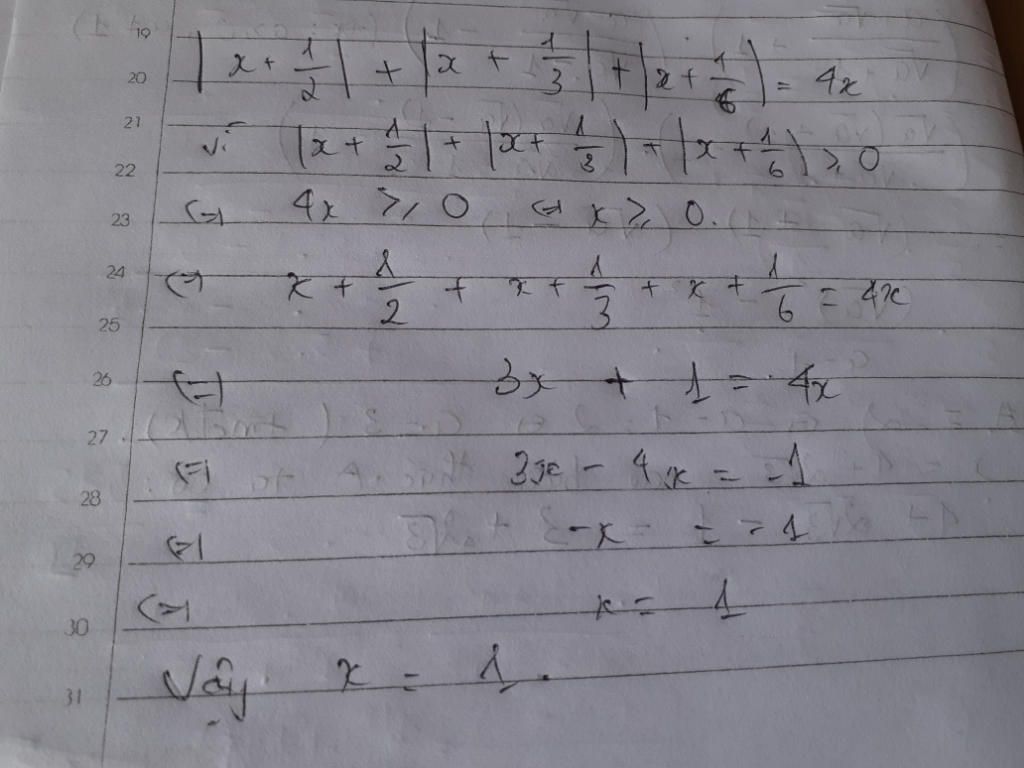 19
|x + 1/2| + |x + 1/3| + |x + 1/6| = 4x
20
21
vì |x + 1/2| + |x + 1/3| + |x + 1/6| ≥ 0
22
(=) 4x ≥ 0 (=) x ≥ 0.
23
24
(=) x + 1/2 + x + 1/3 + x + 1/6 = 4x
25
26 (=) 3x + 1 = 4x
27
(=) 3x - 4x = -1
28
(=) -x = -1
29
(=) x = 1
30
Vậy x = 1.
31